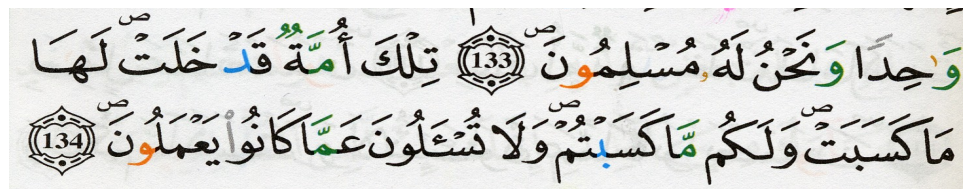 وَٰحِدًا وَنَحْنُ لَهُۥ مُسْلِمُونَ ۝133 تِلْكَ أُمَّةٌ قَدْ خَلَتْ ۖ لَهَا
مَا كَسَبَتْ وَلَكُم مَّا كَسَبْتُمْ ۖ وَلَا تُسْـَٔلُونَ عَمَّا كَانُوا۟ يَعْمَلُونَ ۝134